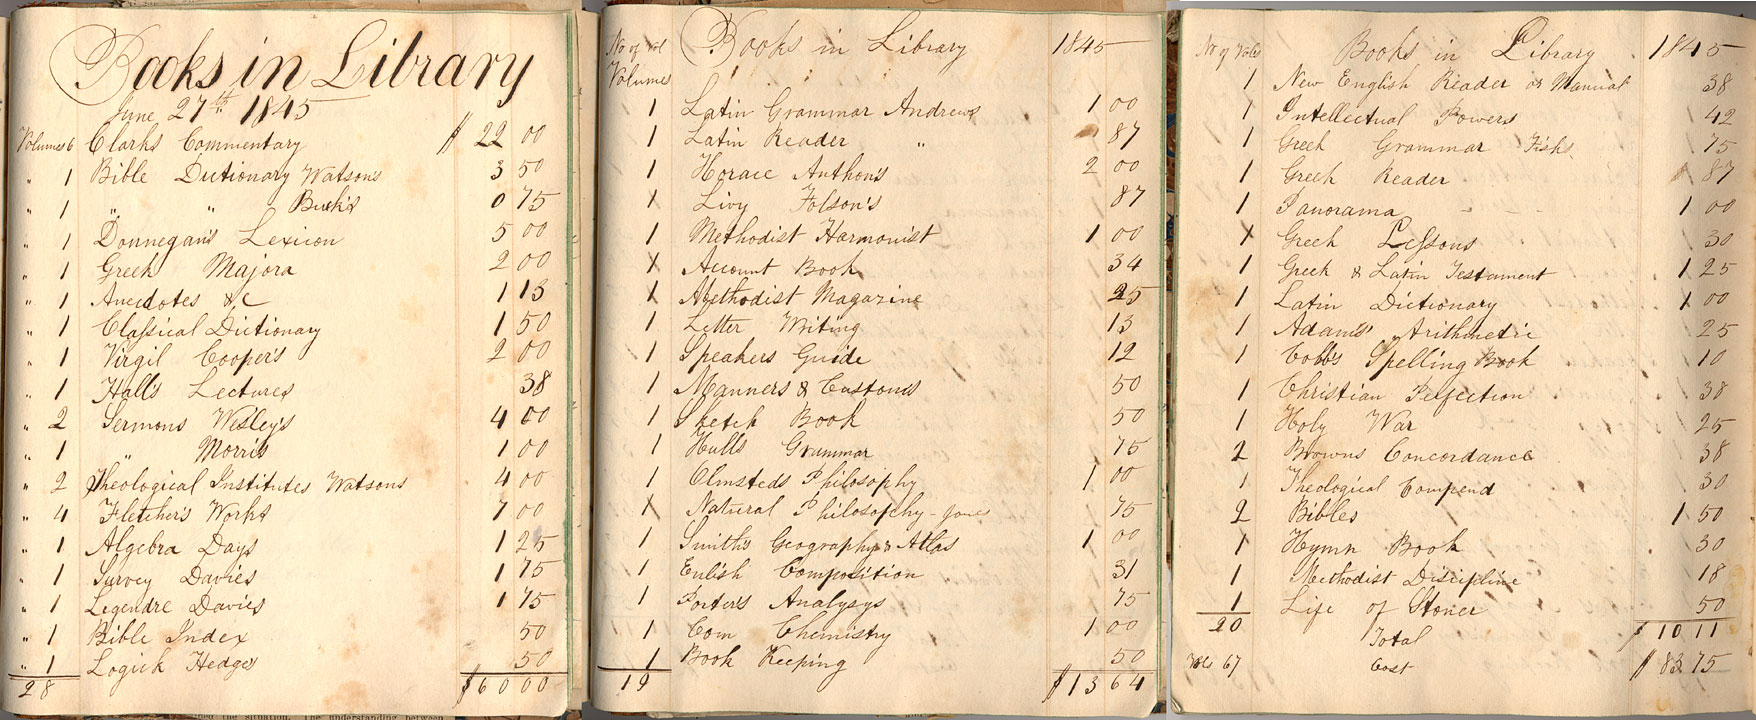 Books in Library
June 27th 1845
Volumes 6 Clarks Commentary $ 22 00
" 1 Bible Dictionary Watson's 3 50
" 1 " " Buck's 0 75
" 1 Donnegan's Lexicon 5 00
" 1 Greek Majora 2 00
" 1 Anecdotes &c 1 13
" 1 Classical Dictionary 1 50
" 1 Virgil Cooper's 2 00
" 1 Hall's Lectures 38
" 2 Sermons Wesley's 4 00
" 1 " Morris 1 00
" 2 Theological Institutes Watsons 4 00
" 4 Fletcher's Works 7 00
" 1 Algebra Days 1 25
" 1 Survey Davies 1 75
" 1 Legendre Davies 1 75
" 1 Bible Index 50
" 1 Logick Hedges 50
28 $60 00
No of vol Books in Library 1845
Volumes
1 Latin Grammar Andrews 1 00
1 Latin Reader " 87
1 Horace Anthon's 2 00
1 Livy Folsom's 87
1 Methodist Harmonist 1 00
1 Account Book 34
1 Methodist Magazine 25
1 Letter Writing 13
1 Speakers Guide 12
1 Manners & Customs 50
1 Sketch Book 50
1 Hulls Grammar 75
1 Olmsteds Philosophy 1 00
1 Natural Philosophy - Jones 75
1 Smith's Geography & Atlas 1 00
1 Enlish Composition 31
1 Porter's Analysys 75
1 Com Chemistry 1 00
1 Book Keeping 50
19 $13 64
No of Vols Books in Library 1845
1 New English Reader or Manual 38
1 Intellectual Powers 42
1 Greek Grammar Fisks 75
1 Greek Reader 87
1 Panorama 1 00
1 Greek Lessons 30
1 Greek & Latin Testament 1 25
1 Latin Dictionary 1 00
1 Adams' Arithmetic 25
1 Cobb's Spelling Book 10
1 Christian Perfection 38
1 Holy War 25
2 Browns Concordance 38
1 Theological Compend 30
2 Bibles 1 50
1 Hymn Book 30
1 Methodist Discipline 18
1 Life of Stoner 50
20 Total $ 10 11
Vols 67 Cost $ 83 75